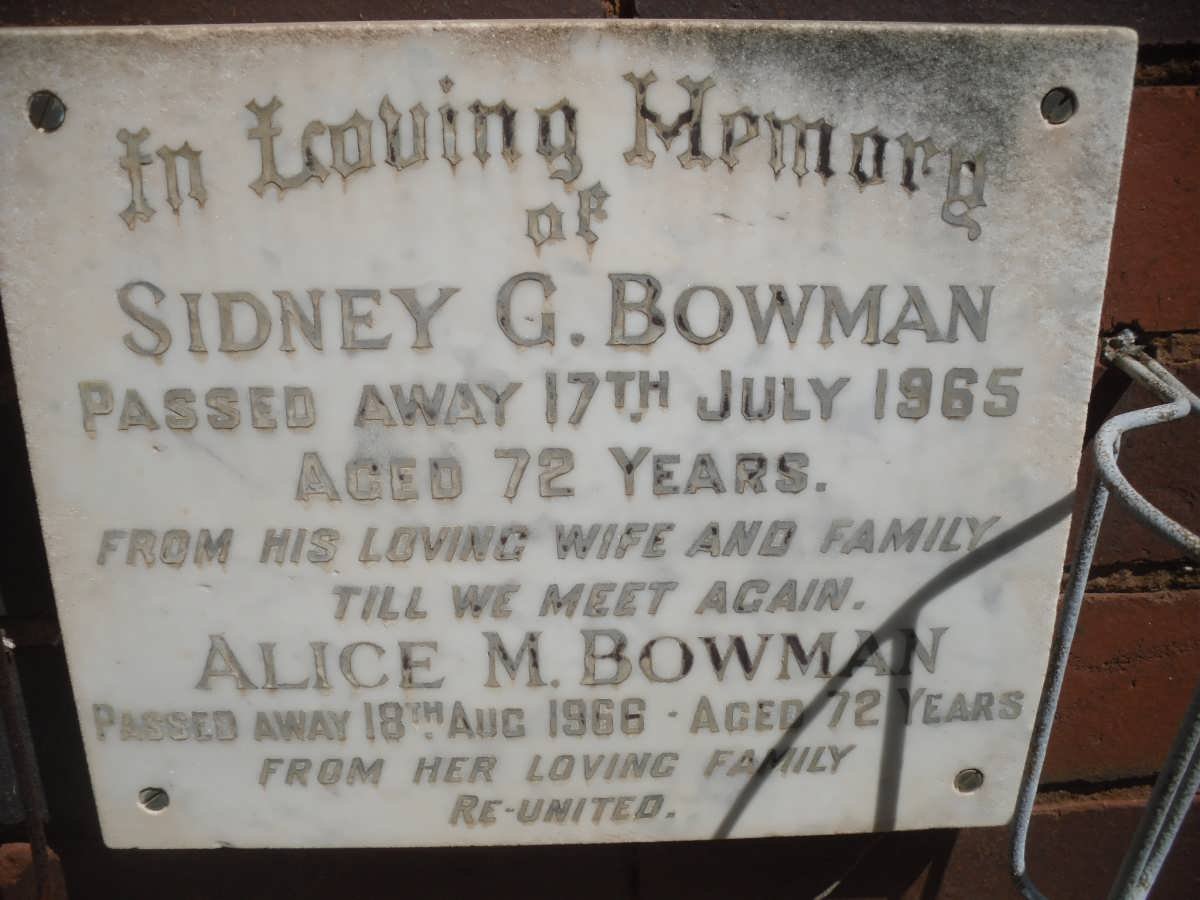 In Loving Memory
of
SIDNEY G. BOWMAN
PASSED AWAY 17TH JULY 1965
AGED 72 YEARS.
FROM HIS LOVING WIFE AND FAMILY
TILL WE MEET AGAIN.
ALICE M. BOWMAN
PASSED AWAY 18TH AUG 1966 - AGED 72 YEARS
FROM HER LOVING FAMILY
RE-UNITED.